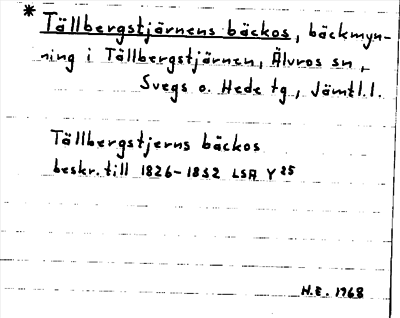 * Tällbergstjärnens bäckos, bäckmyn-
ning i Tällbergstjärnen, Älvros sn,
Svegs o. Hede tg, Jämtl.l.
Tällbergstjerns bäckos
beskr. till 1826-1832 LSA Y 25
H.E. 1968